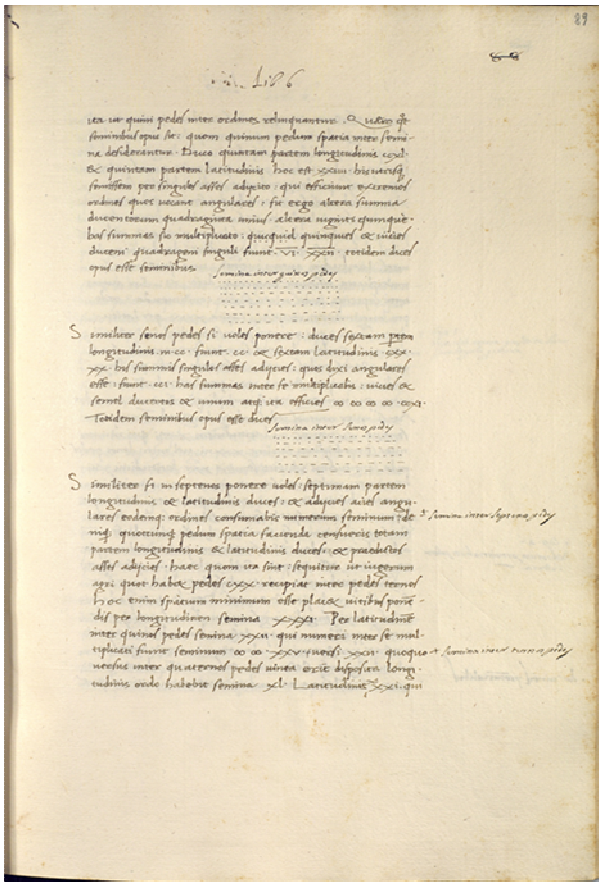 89
Lib 6
ita ut quini pedes inter ordines relinquantur. Quaero q̃t
seminibus opus sit: quom quinum pedum spatia inter semi-
na desiderantur. Duco quintam partem longitudinis ccxl.
& quintam partem latitudinis hoc est xxiiii. his utrisq;
semissem per singulos asses adijcito: qui efficiunt extremos
ordines quos vocant angulares: fit ergo altera summa
ducentorum quadraginta unius altera viginti quinque.
has summas sic multiplicato: quicquid quinquies & vicies
duceni quadrageni singuli fiunt. VI. XXII. totidem dices
opus esse seminibus.
semina inter quinos pedes
Similiter senos pedes si voles ponere: duces sextam partem
longitudinis. m.cc. fiunt. cc. & sextam latitudinis. cxx.
xx. his summis singulos asses adijcies: quos dixi angulares
esse: fiunt. cci. has summas inter se multiplicabis: vicies &
semel ducentos & unum atq; ita efficies ∞ ∞ ∞ ∞ ccxi.
Totidem seminibus opus esse dices
semina inter senos pedes
Similiter si in septenos ponere voles: septimam partem
longitudinis & latitudinis duces: & adijcies asses angu-
lares eodemq; ordines consumabis numerum seminum: de
semina inter septenos pedes
niq; quotcumq; pedum spatia facienda censueris totam
partem longitudinis & latitudinis duces: & praedictos
asses adijcies. haec quom ita sint: sequitur ut iugerum
agri quot habet pedes cxxx recipiat inter pedes ternos
hoc enim spatium minimum esse placet vitibus ponẽ-
dis per longitudinem semina xxxxi. Per latitudinẽ
inter quinos pedes semina xxv. qui numeri inter se mul-
tiplicati fiunt seminum ∞ ∞ xxv. quoquo
semina inter pedes
versus inter quaternos pedes vinea erit disposita longi-
tudinis ordo habebit semina xl. Latitudinis xxxi. qui